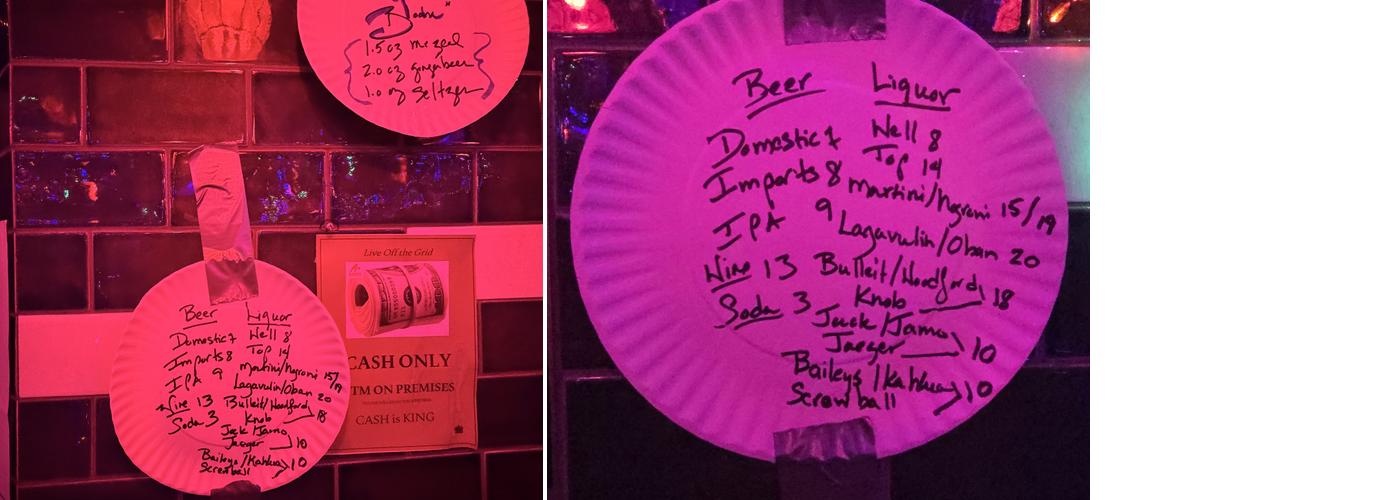 "Nadra"
1.5 oz mezcal
2.0 oz gingerbeer
1.0 oz Seltzer
Live Off the Grid
CASH ONLY
TM ON PREMISES
CASH is KING
Beer Liquor
Domestic 7 Well 8
Imports 8 Top 14
IPA 9 Martini/Negroni 15/19
Wine 13 Lagavulin/Oban 20
Soda 3 Bulleit/Woodford 18
Knob
Jack/Jamo
Jaeger 10
Baileys/Kahlua 10
Screwball
Beer Liquor
Domestic 7 Well 8
Top 14
Imports 8 Martini/Negroni 15/19
IPA 9 Lagavulin/Oban 20
Wine 13 Bulleit/Woodford 18
Soda 3 Knob
Jack/Jamo
Jaeger 10
Baileys/Kahlua 10
Screwball